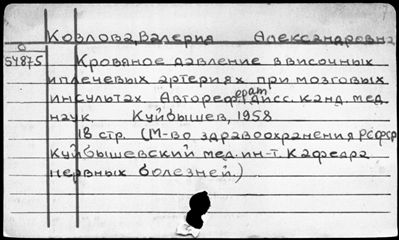 Козлова, Валерия Александровна
0
54875
Кровяное давление в височных
и плечевых артериях при мозговых
инсультах Автореферат дисс. канд. мед.
наук Куйбышев, 1958
18 стр. (М-во здравоохранения РСФСР
Куйбышевский мед. ин-т. Кафедра
нервных болезней.)